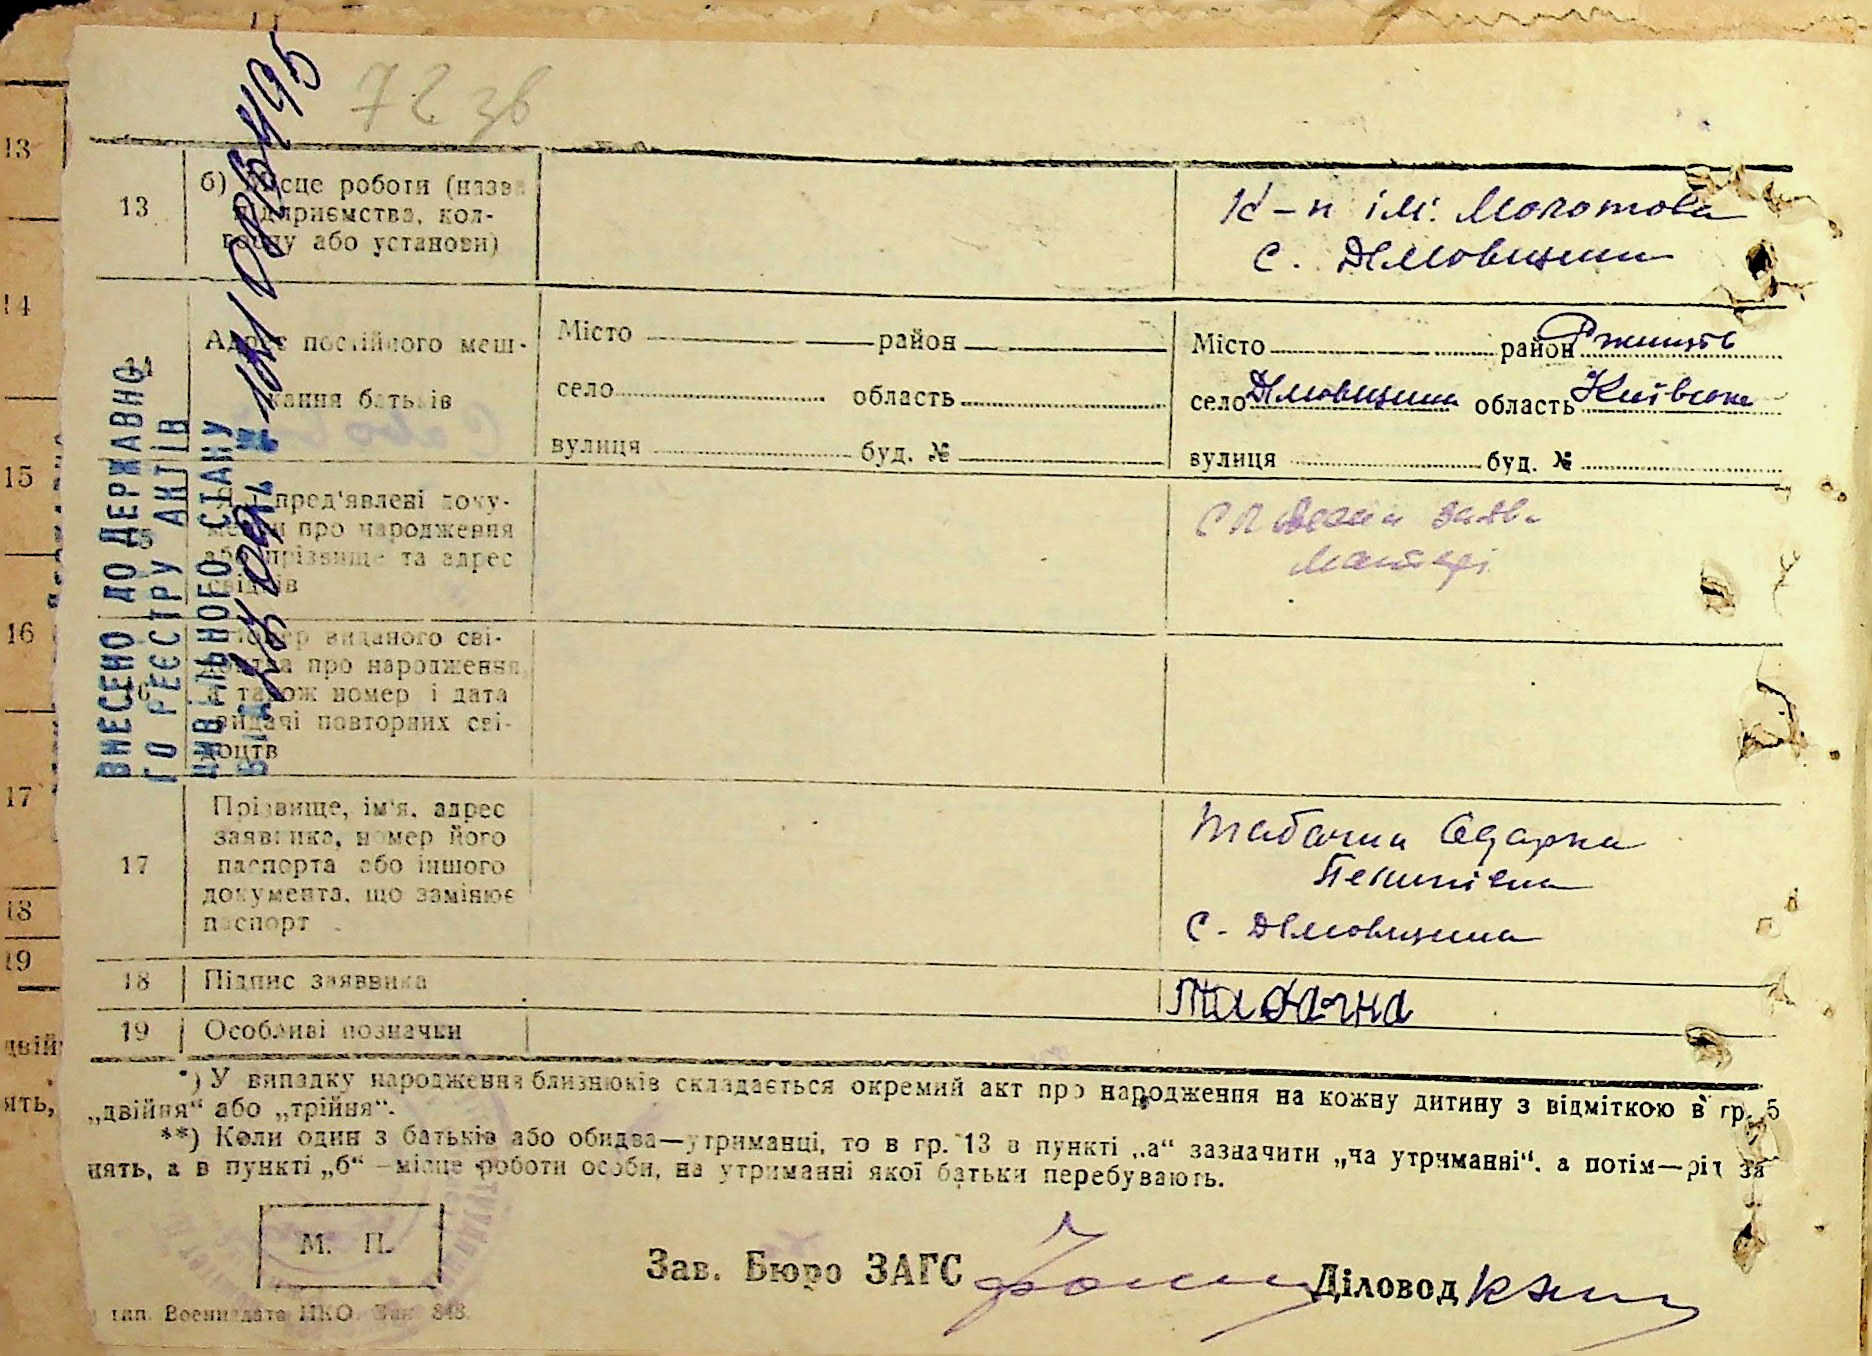 72 зв
13
б) Місце роботи (назва
підприємства, кол-
госпу або установи)
К-п ім. Молотова
с. Дімовщина
14
Адрес постійного меш-
кання батьків
Місто район
село область
вулиця буд. №
Місто район
село Дімовщина область Київська
вулиця буд. №
15
Які пред'явлені доку-
менти про народження
або прізвище та адрес
свідків
заяв.
матері
16
Номер виданого сві-
доцтва про народження,
а також номер і дата
видачі повторних сві-
доцтв
17
Прізвище, ім'я, адрес
заявника, номер його
паспорта або іншого
документа, що замінює
паспорт
Табачна Одарка
с. Дімовщина
18 Підпис заявника
Табачна
19 Особливі позначки
*) У випадку народження близнюків складається окремий акт про народження на кожну дитину з відміткою в гр. 5
„двійня“ або „трійня“.
**) Коли один з батьків або обидва—утриманці, то в гр. 13 в пункті „а“ зазначити „на утриманні“, а потім—рід за
нять, а в пункті „б“—місце роботи особи, на утриманні якої батьки перебувають.
М. П.
Зав. Бюро ЗАГС
Діловод
тип. Воениздата НКО. Зак. 848.
ВНЕСЕНО ДО ДЕРЖАВНО-
ГО РЕЄСТРУ АКТІВ
ЦИВІЛЬНОГО СТАНУ
13
14
15
16
17
18
19
двій
ять,